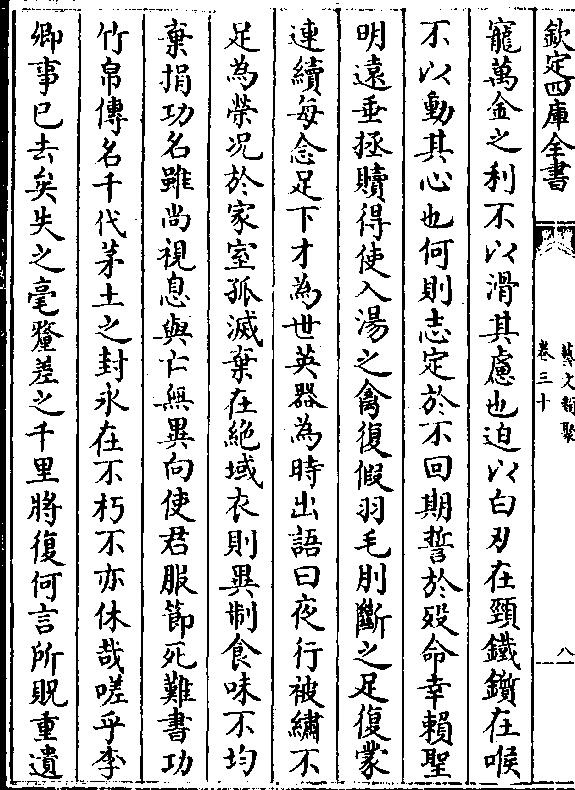 欽定四庫全書
藝文類聚
卷三十
八
寵萬金之利不以滑其慮也迫以白刃在頸鐵鑕在喉
不以動其心也何則志定於不回期誓於殁命幸賴聖
明遠垂拯贖得使入湯之禽復假羽毛刖斷之足復蒙
連續每念足下才為世英器為時出語曰夜行被繡不
足為榮况於家室孤滅棄在絶域衣則異制食味不均
棄捐功名雖尚視息與亡無異向使君服節死難書功
竹帛傳名千代茅土之封永在不朽不亦休哉嗟乎李
卿事已去矣失之毫釐差之千里將復何言所貺重遺